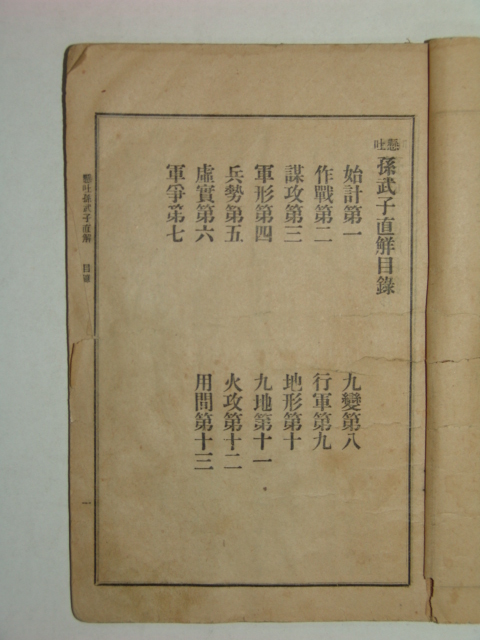 懸吐孫武子直觧目錄
始計第一
作戰第二
謀攻第三
軍形第四
兵勢第五
虛實第六
軍爭第七
九變第八
行軍第九
地形第十
九地第十一
火攻第十二
用間第十三
懸吐孫武子直觧 目錄 一